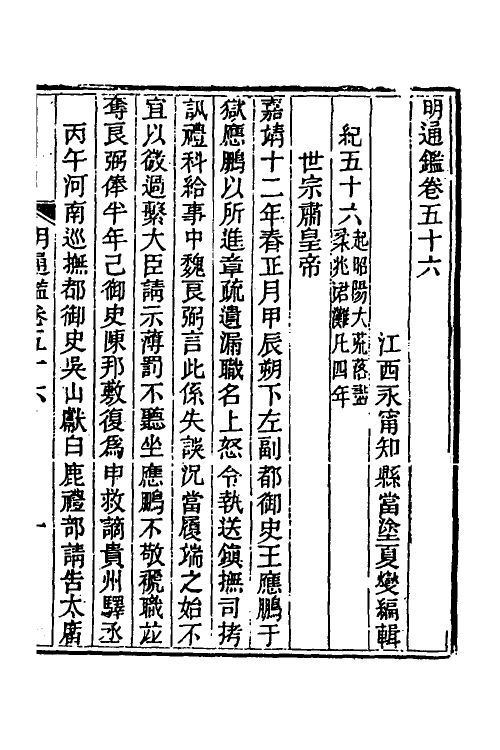 明通鑑卷五十六
江西永甯知縣當塗夏燮編輯
紀五十六起昭陽大荒落盡柔兆涒灘凡四年
世宗肅皇帝
嘉靖十二年春正月甲辰朔下左副都御史王應鵬于
獄應鵬以所進章疏遺漏職名上怒令執送鎮撫司拷
訊禮科給事中魏良弼言此係失誤況當履端之始不
宜以微過繫大臣請示薄罰不聽坐應鵬不敬褫職竝
奪良弼俸半年己御史陳邦敷復爲申救謫貴州驛丞
丙午河南巡撫都御史吳山獻白鹿禮部請告太廟
明通鑑卷五十六
一